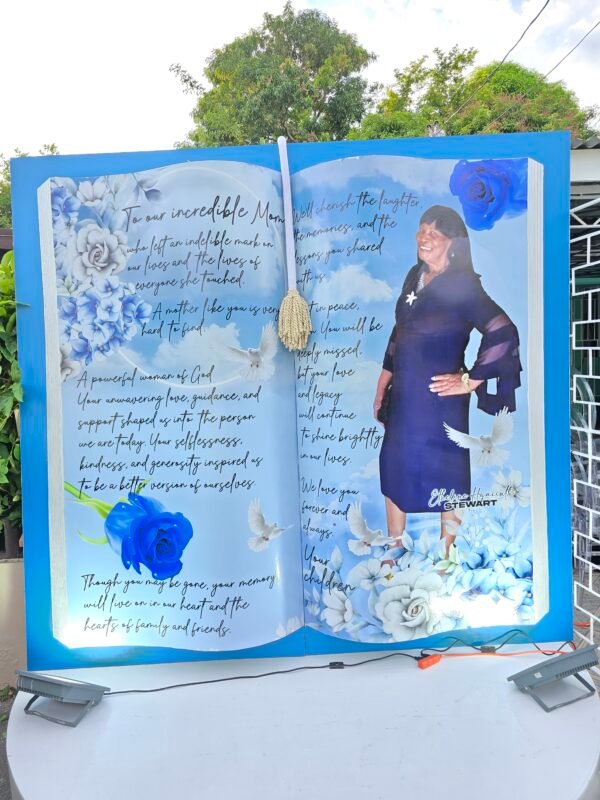 To our incredible Mom
who left an indelible mark on
our lives and the lives of
everyone she touched.
A mother like you is very
hard to find.
A powerful woman of God
Your unwavering love, guidance, and
support shaped us into the person
we are today. Your selflessness,
kindness, and generosity inspired us
to be a better version of ourselves.
Though you may be gone, your memory
will live on in our heart and the
hearts of family and friends.
We'll cherish the laughter,
the memories, and the
lessons you shared
with us.
in peace,
You will be
deeply missed,
but your love
and legacy
will continue
to shine brightly
in our lives.
We love you
forever and
always"
Your
children
STEWART